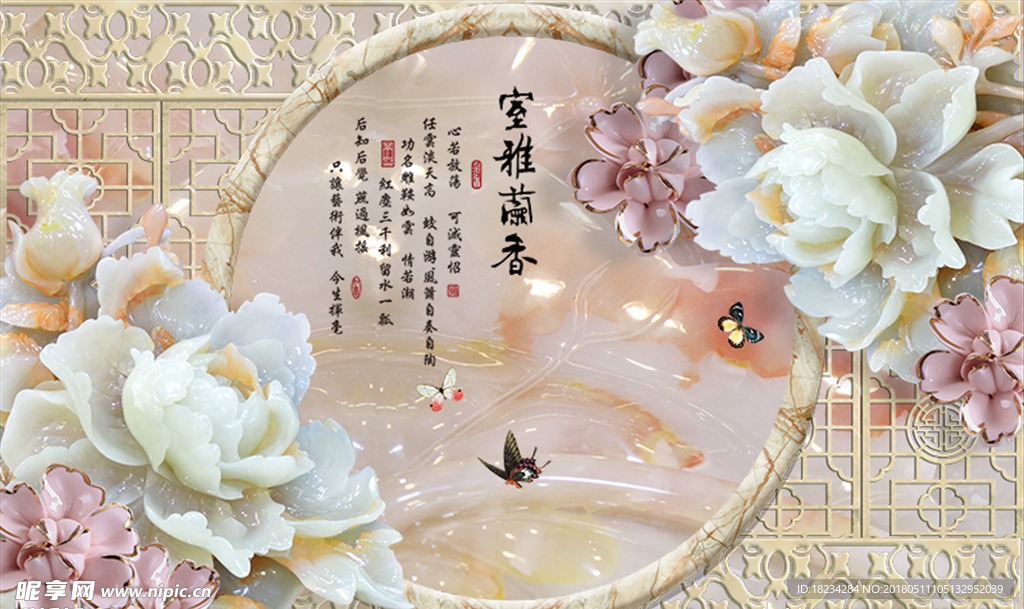 室雅蘭香
心若放蕩　可減靈韶
任雲淡天高　蛟自游風蕭自奏自陶
功名雕鞍如雲　情若潮
紅塵三千利留水一瓢
后知后覺　藐過
只讓藝術伴我　今生揮毫
昵享网 www.nipic.cn
ID:18234284 NO:20180511105132952039